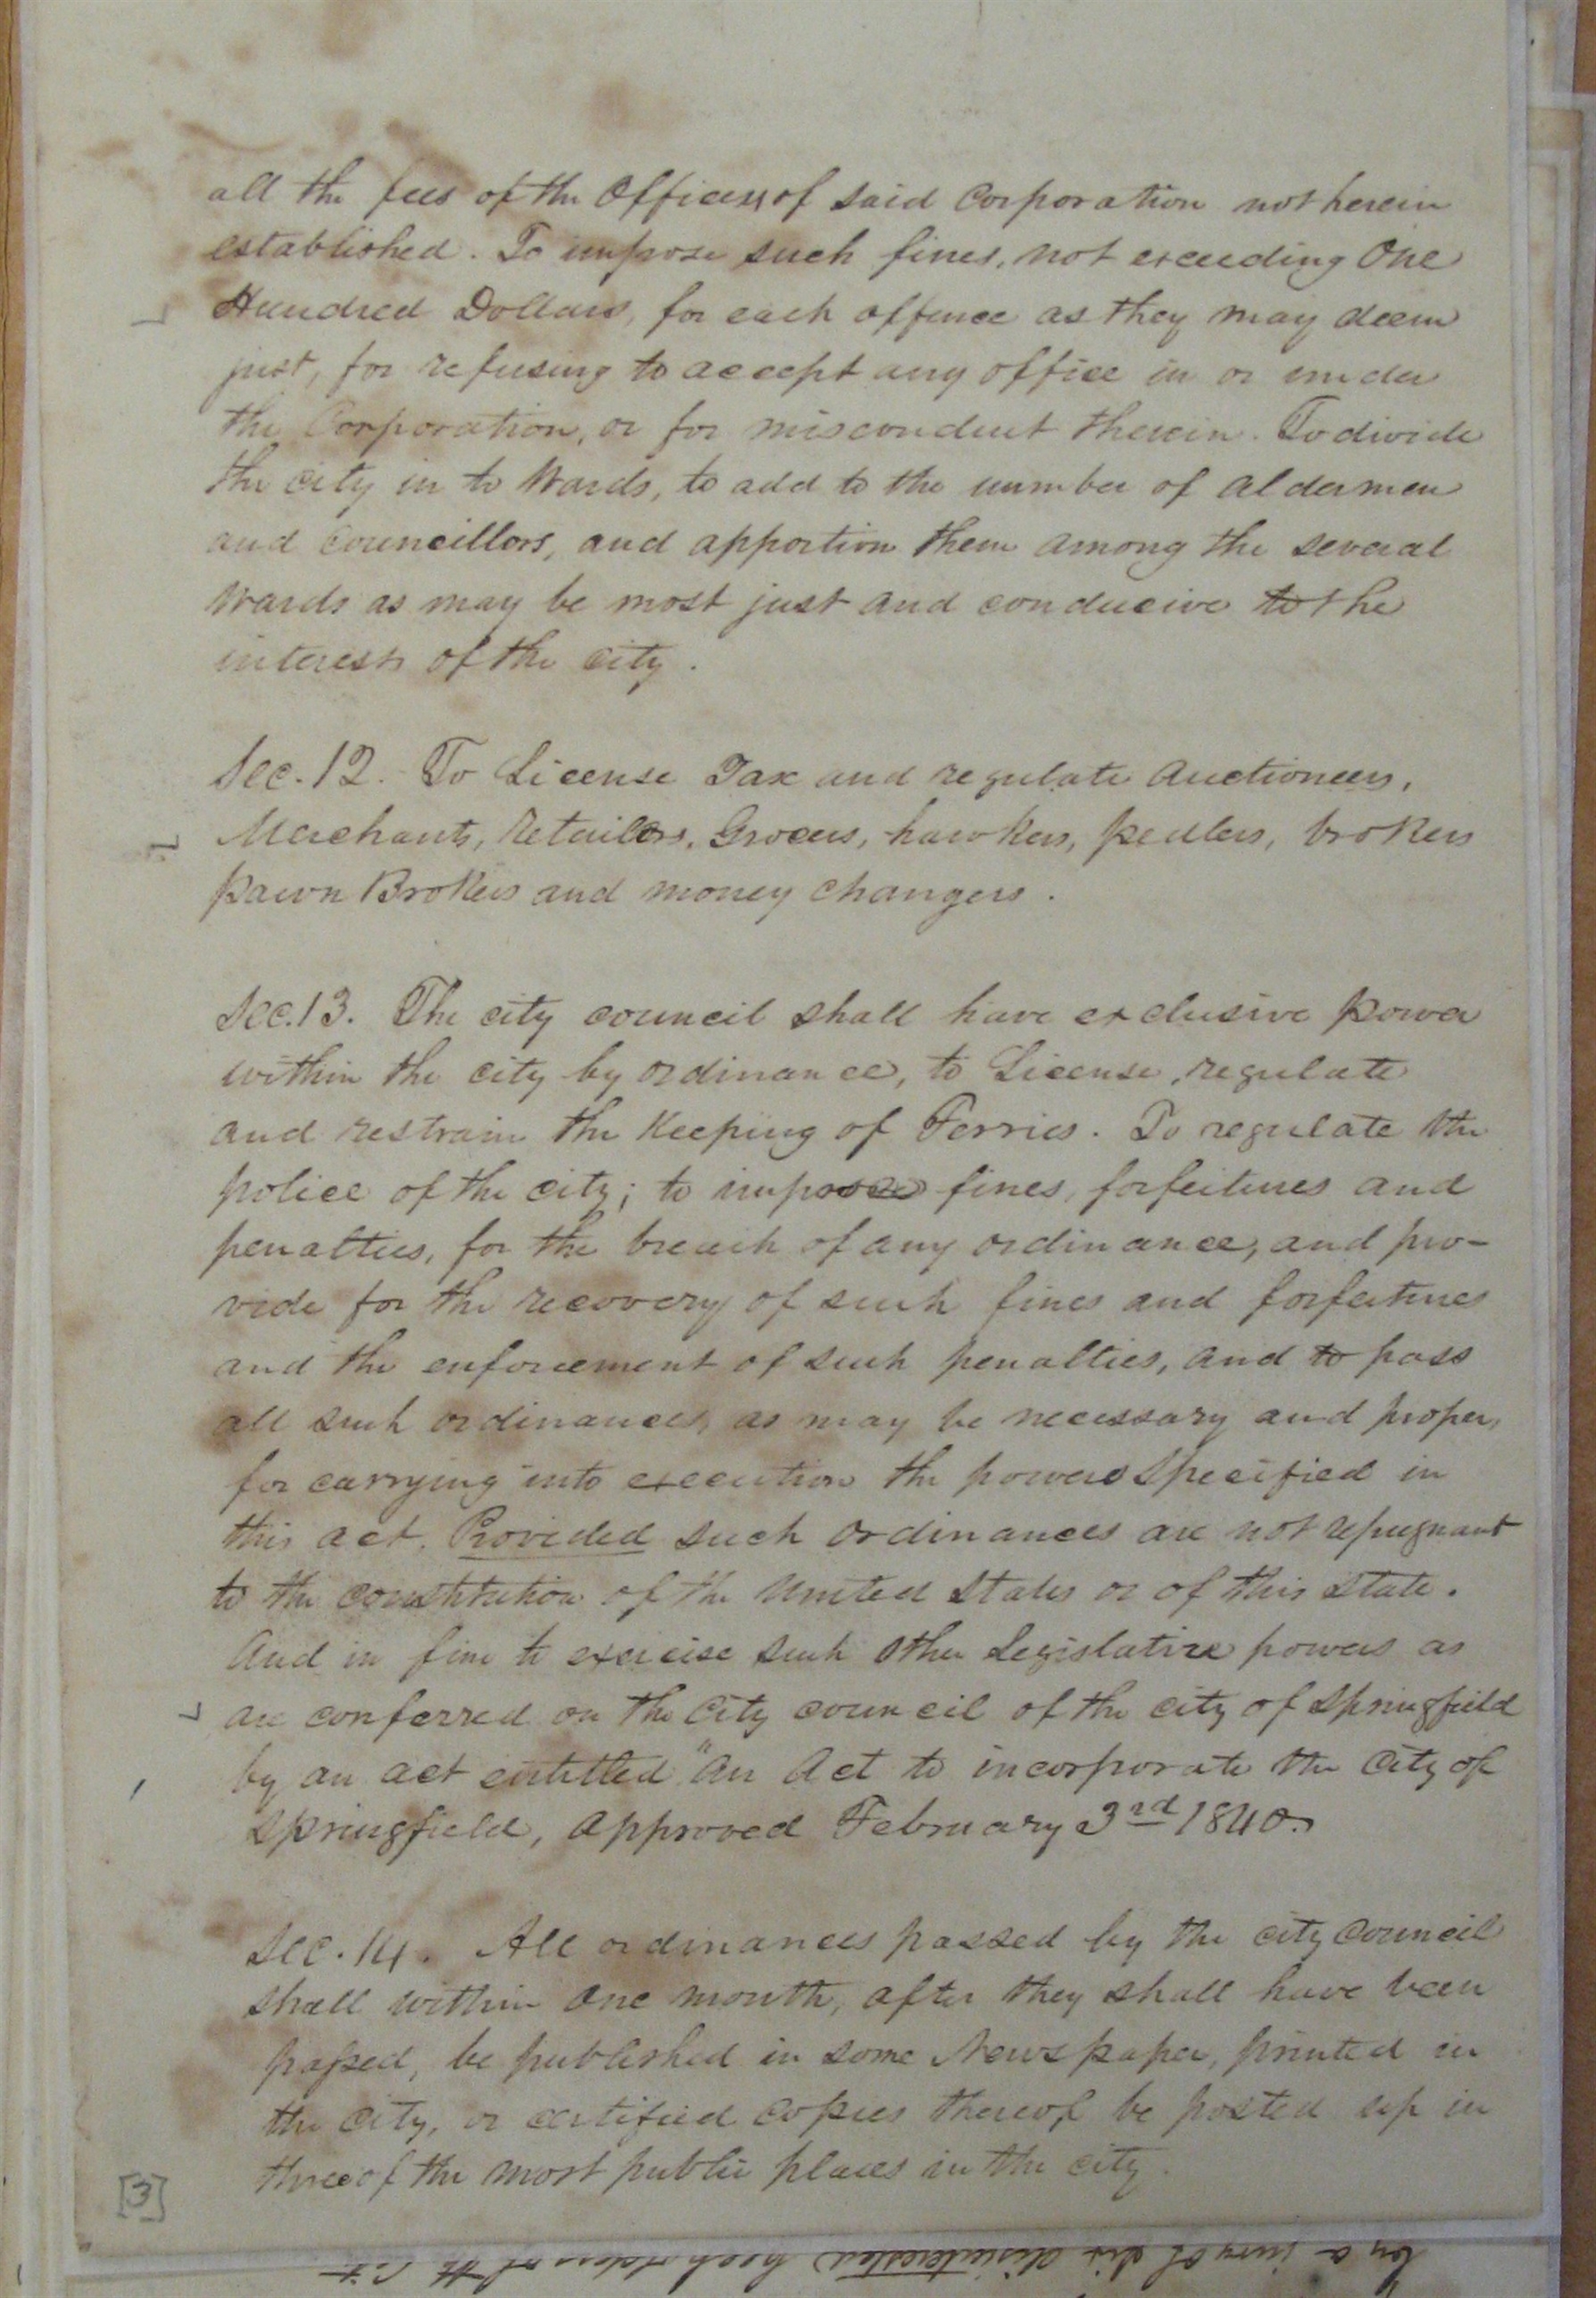 all the fees of the Officers of said Corporation not herein
established. To impose such fines, not exceeding One
Hundred Dollars, for each offence as they may deem
just, for refusing to accept any office in or under
the Corporation, or for misconduct therein. To divide
the city in to Wards, to add to the number of aldermen
and councillors, and apportion them among the several
wards as may be most just and conducive to the
interests of the city.
Sec. 12. To License Tax and regulate auctioneers,
Merchants, retailers, Grocers, hawkers, pedlers, brokers
pawn Brokers and money changers.
Sec. 13. The city council shall have exclusive power
within the city by ordinance, to License, regulate
and restrain the Keeping of Ferries. To regulate the
police of the city; to impose fines, forfeitures and
penalties, for the breach of any ordinance, and pro-
vide for the recovery of such fines and forfeitures
and the enforcement of such penalties, and to pass
all such ordinances, as may be necessary and proper,
for carrying into execution the powers specified in
this act. Provided such ordinances are not repugnant
to the constitution of the United States or of this State.
And in fine to exercise such other Legislative powers as
are conferred on the City council of the city of Springfield
by an act entitled "An Act to incorporate the City of
Springfield, approved February 3rd 1840.
Sec. 14. All ordinances passed by the city council
shall within one month, after they shall have been
passed, be published in some Newspaper, printed in
the city, or certified copies thereof be posted up in
three of the most public places in the city.
[3]
by a jury of six disinterested